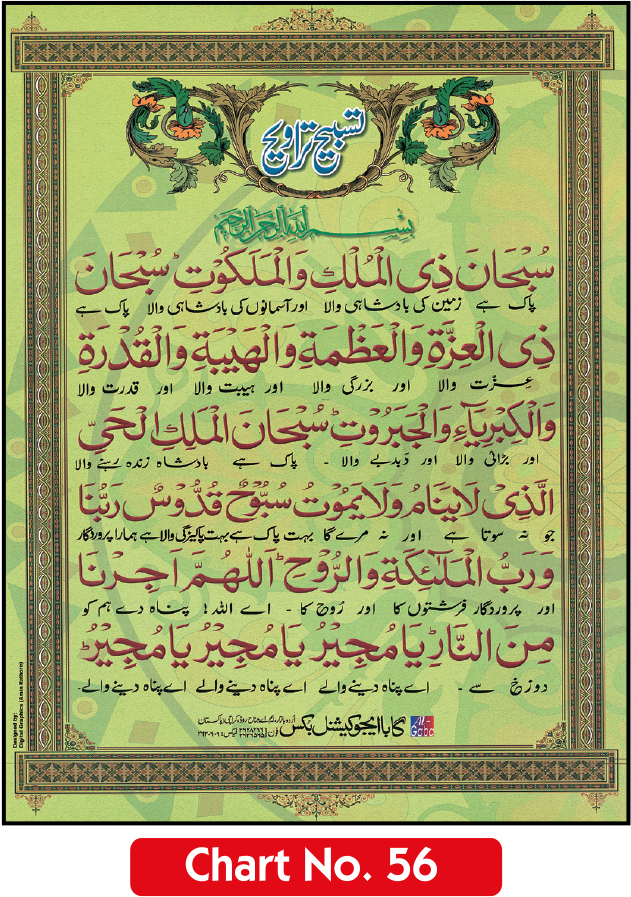 تسبیح تراویح
بسم الله الرحمن الرحيم
سُبْحَانَ ذِی الْمُلْكِ وَالْمَلَكُوْتِ ؕ سُبْحَانَ
پاک ہے زمین کی بادشاہی والا اور آسمانوں کی بادشاہی والا پاک ہے
ذِی الْعِزَّةِ وَالْعَظْمَةِ وَالْهَیْبَةِ وَالْقُدْرَةِ
عزّت والا اور بزرگی والا اور ہیبت والا اور قدرت والا
وَالْكِبْرِیَآءِ وَالْجَبَرُوْتِ ؕ سُبْحَانَ الْمَلِكِ الْحَیِّ
اور بڑائی والا اور دَبدبے والا - پاک ہے بادشاہ زندہ رہنے والا
الَّذِیْ لَا یَنَامُ وَلَا یَمُوْتُ سُبُّوْحٌ قُدُّوْسٌ رَبُّنَا
جو نہ سوتا ہے اور نہ مرے گا بہت پاک ہے بہت پاکیزگی والا ہے ہمارا پروردگار
وَرَبُّ الْمَلٰٓئِكَةِ وَالرُّوْحِ ؕ اَللّٰهُمَّ اَجِرْنَا
اور پروردگار فرشتوں کا اور رُوح کا - اے اللہ! پناہ دے ہم کو
مِنَ النَّارِ ؕ یَا مُجِیْرُ یَا مُجِیْرُ یَا مُجِیْرُ ؕ
دوزخ سے - اے پناہ دینے والے اے پناہ دینے والے اے پناہ دینے والے-
Al-Gaba گابا ایجوکیشنل بکس اُردو بازار، ایم اے جناح روڈ، کراچی پاکستان
فون
Designed by:
Digital Graphics (Amin Rathore)
Chart No. 56